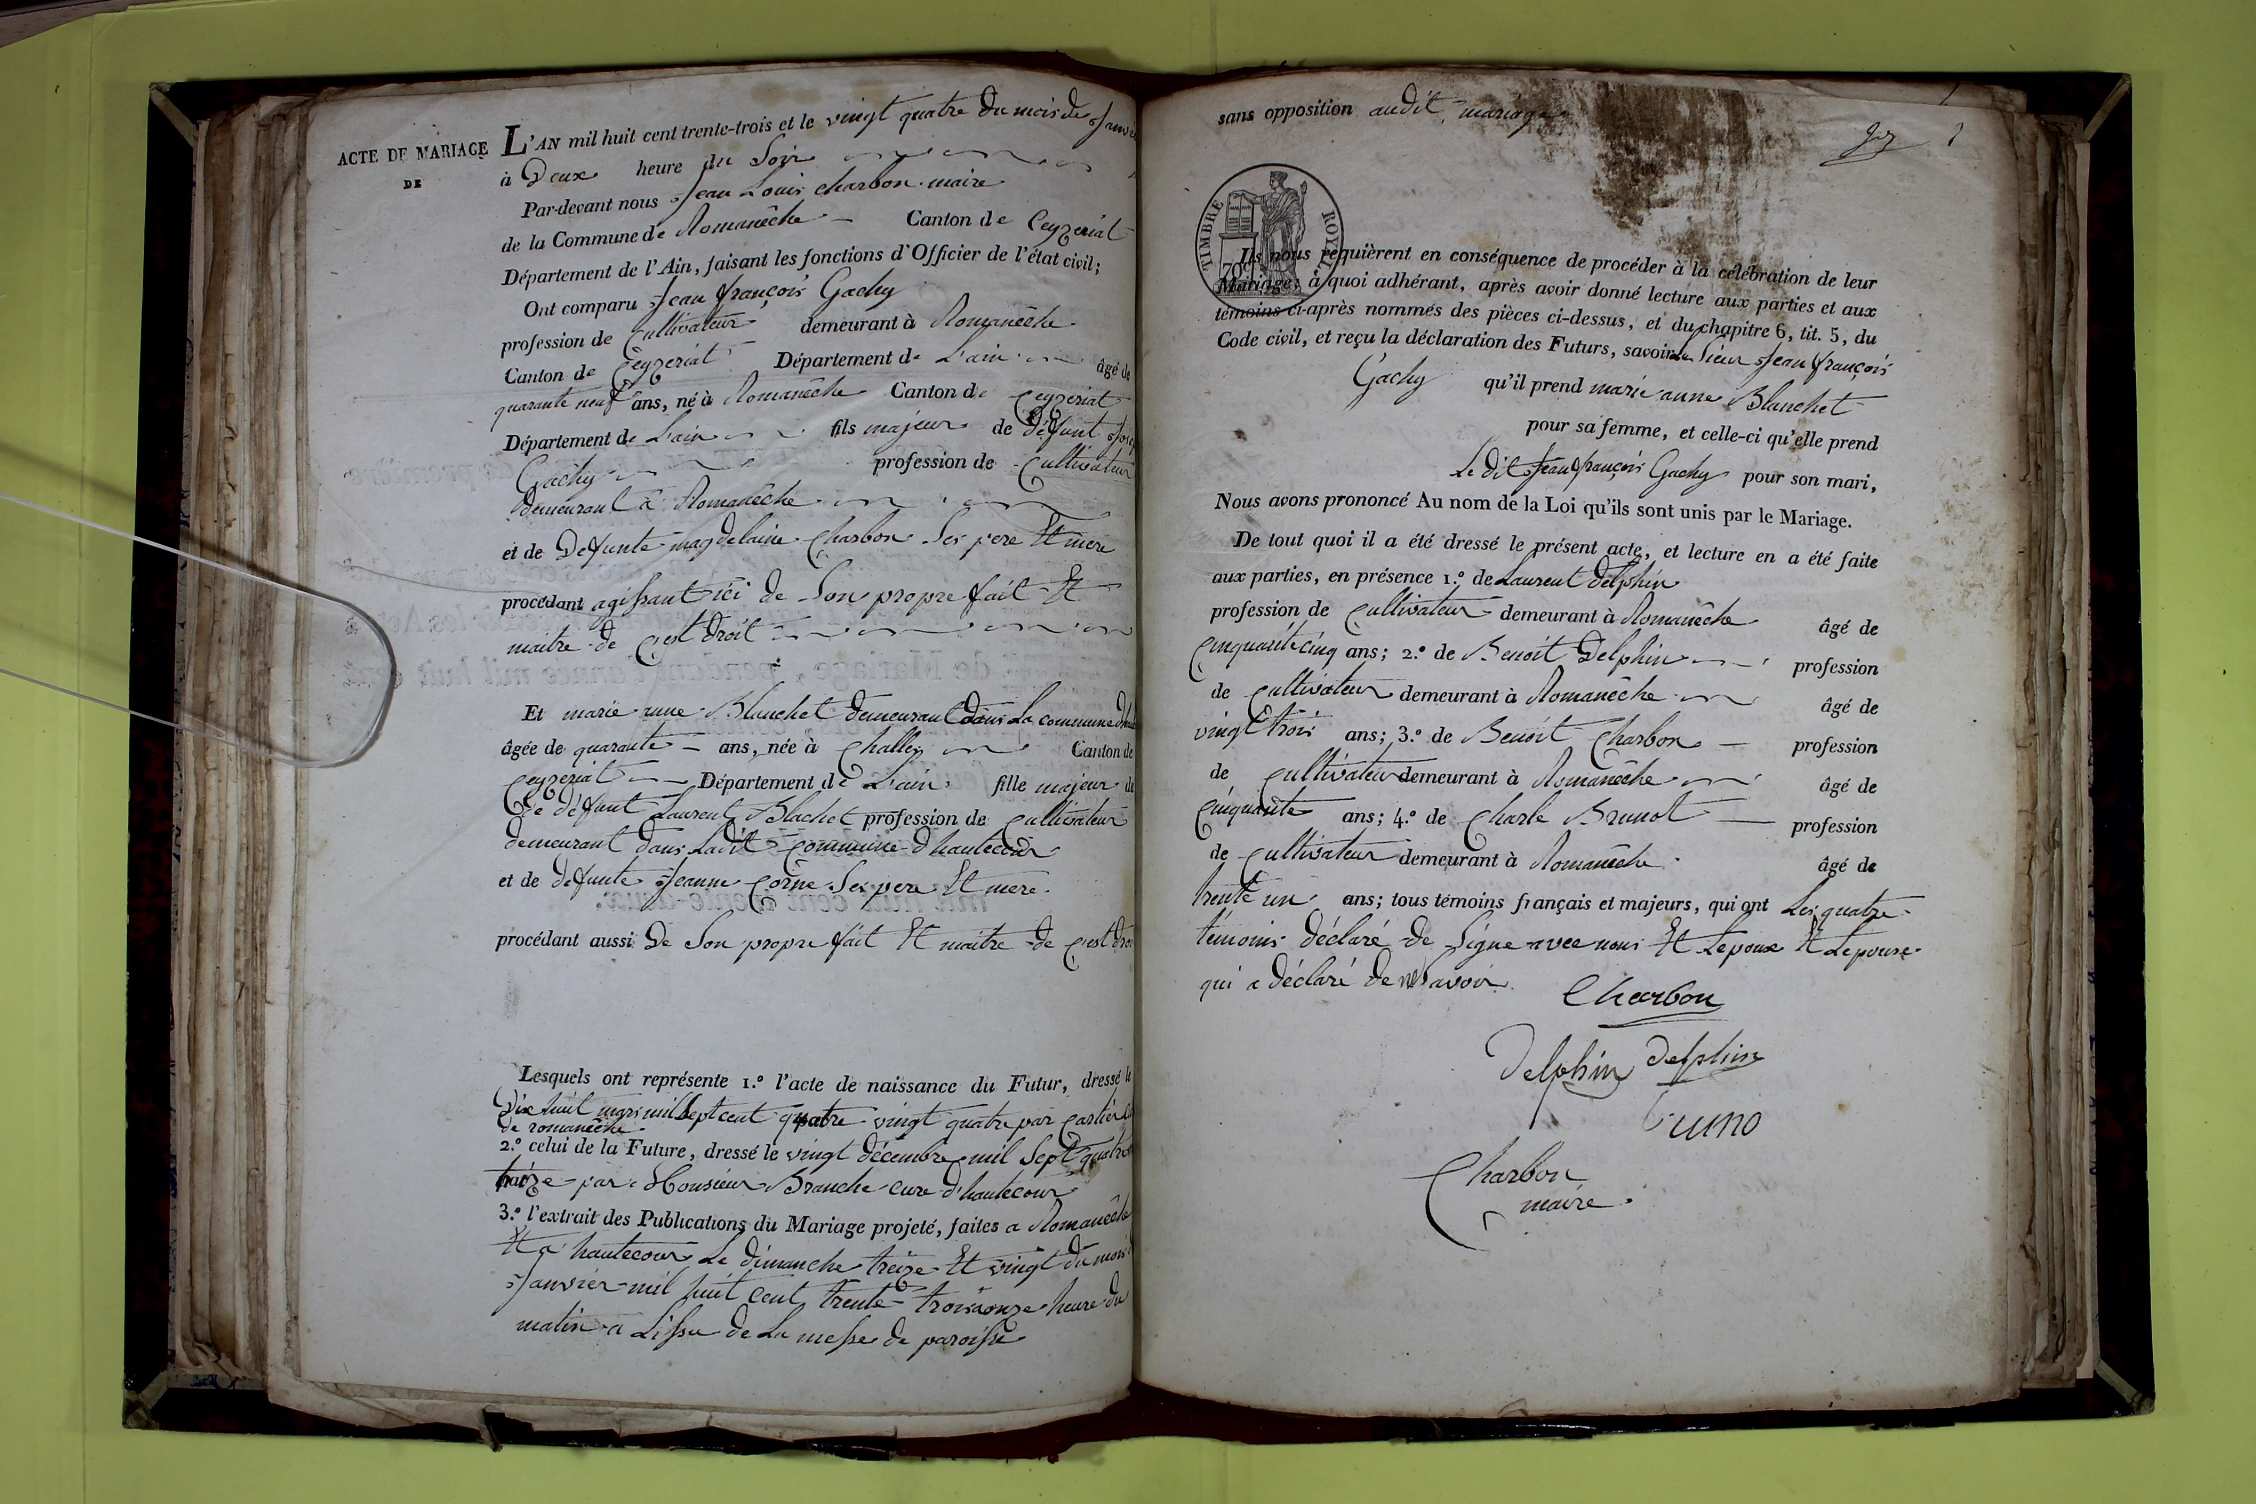 ACTE DE MARIAGE
DE
L'AN mil huit cent trente-trois et le vingt quatre du mois de Janvi
à Deux heure du Soir
Par-devant nous Jean Louis charbon maire
de la Commune de Romanêche Canton de Ceyzeriat
Département de l'Ain, faisant les fonctions d'Officier de l'état civil;
Ont comparu Jean françois Gachy
profession de Cultivateur demeurant à Romanêche
Canton de Ceyzeriat Département de L'ain âgé de
quarante neuf ans, né à Romanêche Canton de Ceyzeriat
Département de L'ain fils majeur de défunt Jose
Gachy profession de Cultivateur
demeurant a Romanêche
et de Defunte magdelaine Charbon Ses pere Et mere
procédant agissant ici de Son propre fait Et
maitre de Cest droit
Et marie anne Blanchet demeurant dans La commune d'haut
âgée de quarante ans, née à Challey Canton de
Ceyzeriat Département de L'ain fille majeur de
De défunt Laurent Blachet profession de Cultivateur
demeurant dans Ladit Commune d'hautecour
et de defunte Jeanne Corne Ses pere Et mere
procédant aussi De Son propre fait Et maitre de Cest droi
Lesquels ont représente 1.º l'acte de naissance du Futur, dressé le
Dix huit mars mil Sept cent quatre vingt quatre par Cartier
de romanêche
2.º celui de la Future, dressé le vingt décembre mil Sept quatre
treize par Monsieur Branche cure d'hautecour
3.º l'extrait des Publications du Mariage projeté, faites a Romanêche
Et a hautecour Le dimanche treize Et vingt du mois
Janvier mil huit Cent trente trois onze heure du
matin a Lissue de La messe de paroisse
sans opposition audit mariage
TIMBRE ROYAL
70
Ils nous requièrent en conséquence de procéder à la célébration de leur
Mariage; à quoi adhérant, après avoir donné lecture aux parties et aux
témoins ci-après nommés des pièces ci-dessus, et du chapitre 6, tit. 5, du
Code civil, et reçu la déclaration des Futurs, savoir Le Sieur Jean françois
Gachy qu'il prend marie anne Blanchet
pour sa femme, et celle-ci qu'elle prend
Le dit Jean françois Gachy pour son mari,
Nous avons prononcé Au nom de la Loi qu'ils sont unis par le Mariage.
De tout quoi il a été dressé le présent acte, et lecture en a été faite
aux parties, en présence 1.º de Laurent Delphin
profession de Cultivateur demeurant à Romanêche âgé de
Cinquante cinq ans; 2.º de Benoit Delphin profession
de Cultivateur demeurant à Romanêche âgé de
vingt Et trois ans; 3.º de Benoit Charbon profession
de Cultivateur demeurant à Romanêche âgé de
Cinquante ans; 4.º de Charle Brunot profession
de Cultivateur demeurant à Romanêche âgé de
trente un ans; tous témoins français et majeurs, qui ont Les quatre
témoins déclaré de Signe avec nous Et Lepoux Et Lepouse
qui a déclaré de ne Savoir
Charbon
Delphin delphin
Charbon
maire